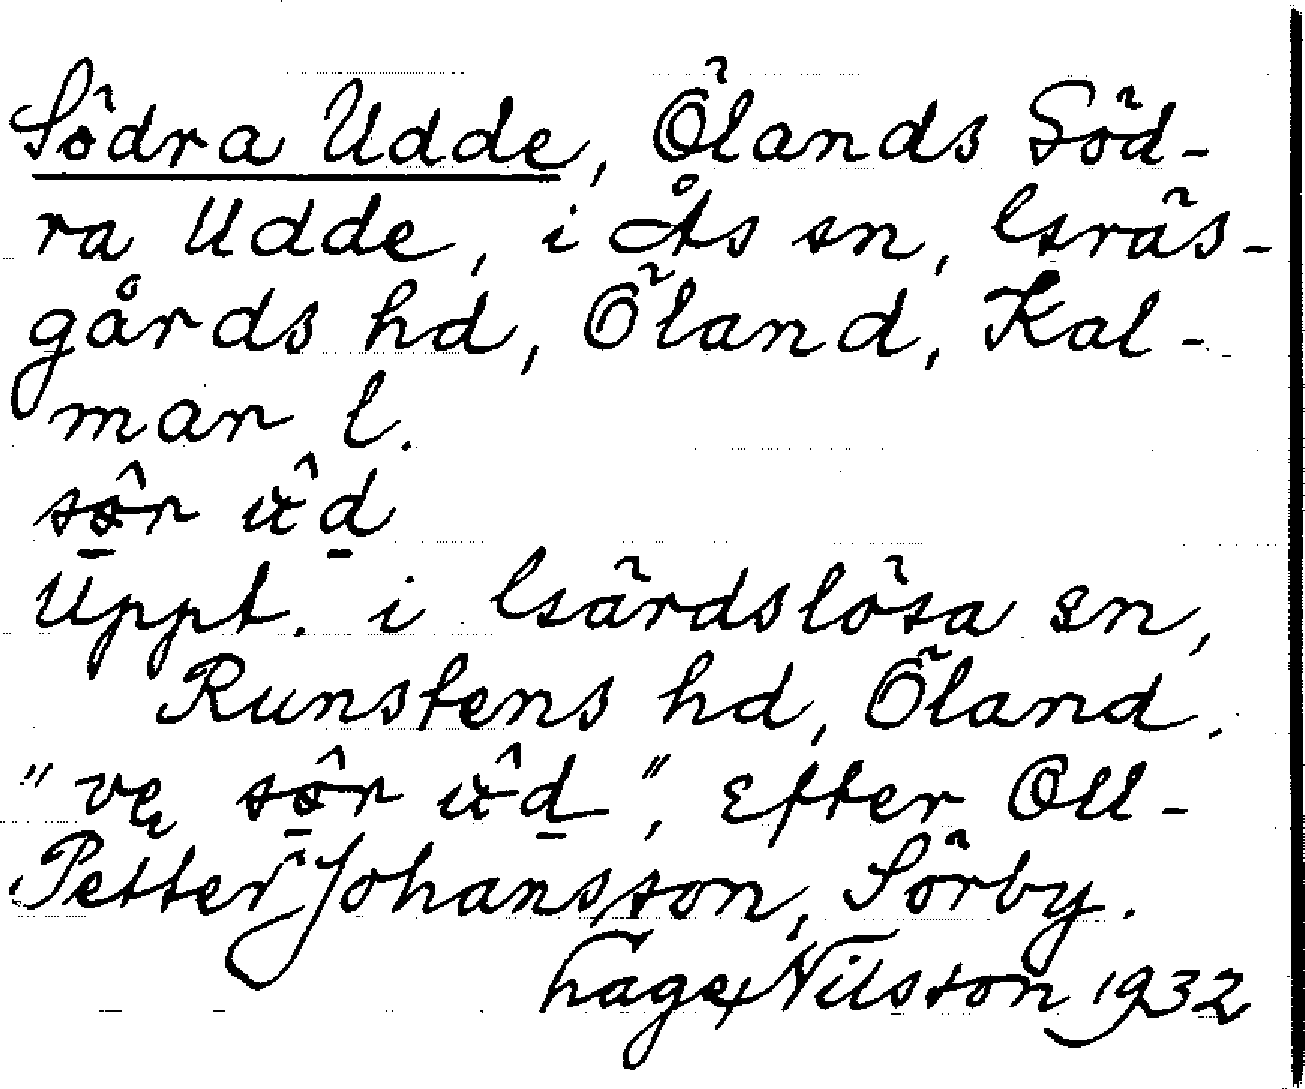 Södra Udde, Ölands Söd-
ra Udde, i Ås sn, Gräs-
gårds hd, Öland, Kal-
mar l.
sôr ûd
Uppt. i Gärdslösa sn,
Runstens hd, Öland.
"ve sôr ûd", Efter Oll-
Petter Johansson, Sörby.
Nilsson 1932